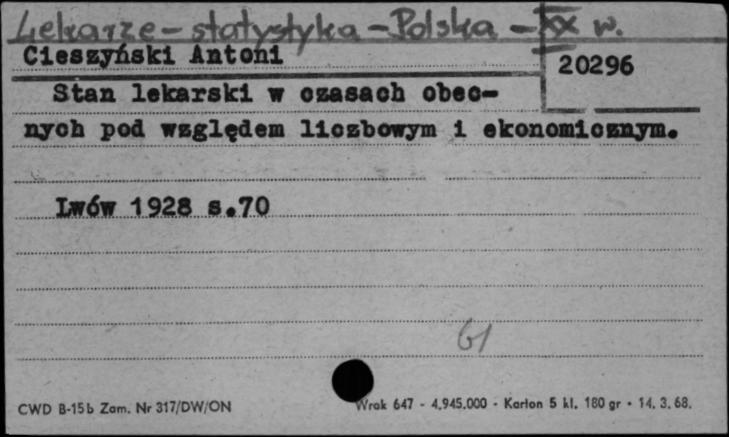 Lekarze - statystyka - Polska - XX w.
Cieszyński Antoni
20296
Stan lekarski w czasach obec-
nych pod względem liczbowym i ekonomicznym.
Lwów 1928 s.70
61
CWD B-15b Zam. Nr 317/DW/ON Wrok 647 - 4.945.000 - Karton 5 kl. 180 gr - 14. 3. 68.